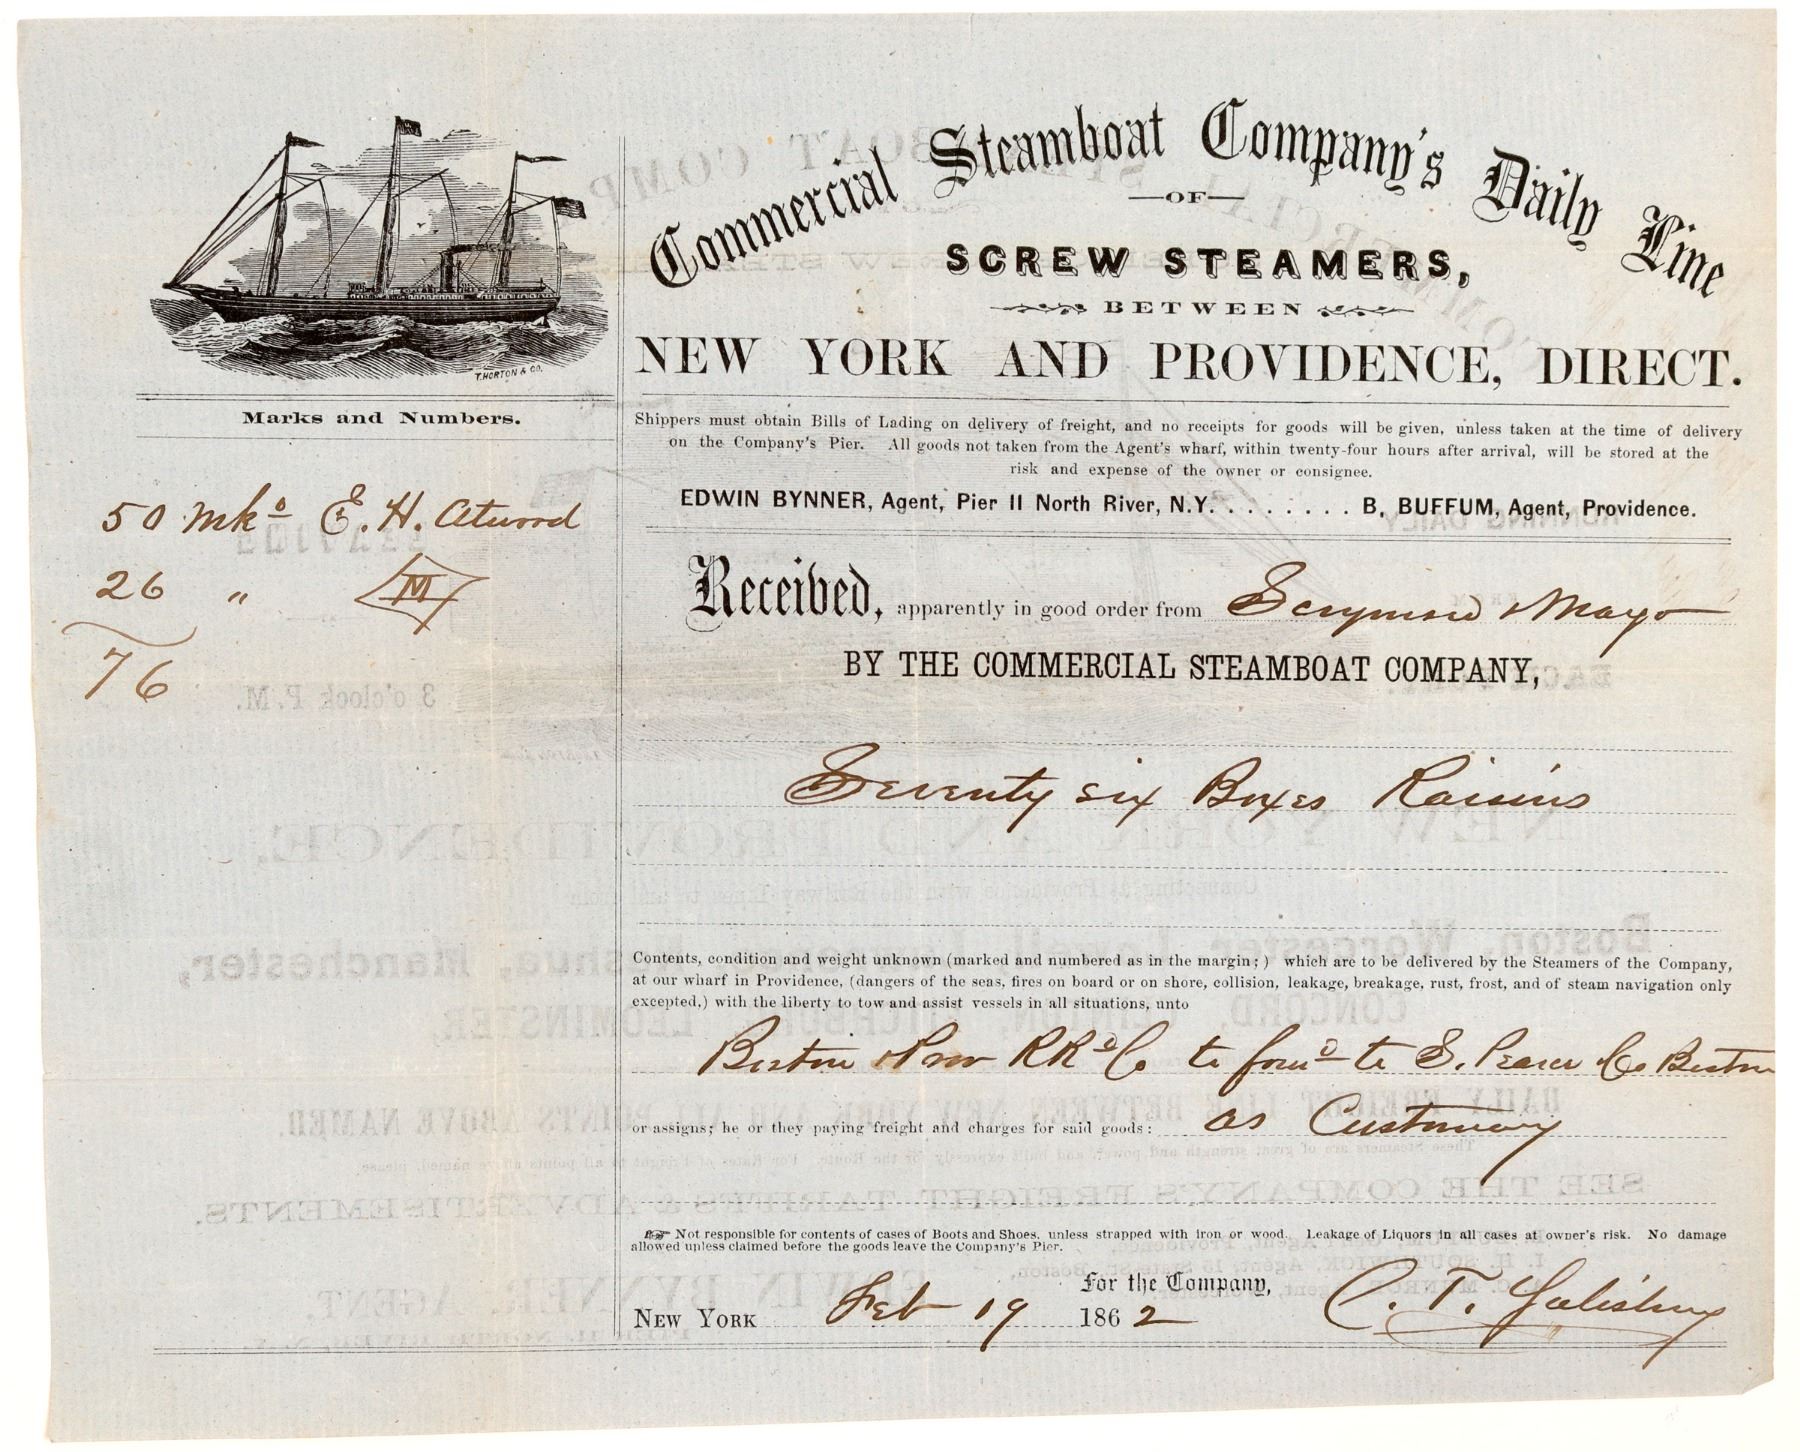 Commercial Steamboat Company's Daily Line
—OF—
SCREW STEAMERS,
BETWEEN
NEW YORK AND PROVIDENCE, DIRECT.
T. HORTON & CO.
Marks and Numbers.
50 mkd E. H. Atwood
26 " M
76
Shippers must obtain Bills of Lading on delivery of freight, and no receipts for goods will be given, unless taken at the time of delivery
on the Company's Pier. All goods not taken from the Agent's wharf, within twenty-four hours after arrival, will be stored at the
risk and expense of the owner or consignee.
EDWIN BYNNER, Agent, Pier 11 North River, N.Y. . . . . . . . . B. BUFFUM, Agent, Providence.
Received, apparently in good order from & Mayo
BY THE COMMERCIAL STEAMBOAT COMPANY,
Seventy six Boxes Raisins
Contents, condition and weight unknown (marked and numbered as in the margin;) which are to be delivered by the Steamers of the Company,
at our wharf in Providence, (dangers of the seas, fires on board or on shore, collision, leakage, breakage, rust, frost, and of steam navigation only
excepted,) with the liberty to tow and assist vessels in all situations, unto
Boston & Prov RRd Co to forwd to S. Co Boston
or assigns; he or they paying freight and charges for said goods: as Customary
Not responsible for contents of cases of Boots and Shoes, unless strapped with iron or wood. Leakage of Liquors in all cases at owner's risk. No damage
allowed unless claimed before the goods leave the Company's Pier.
For the Company,
NEW YORK Feb 19 1862 C. T. Salisbury